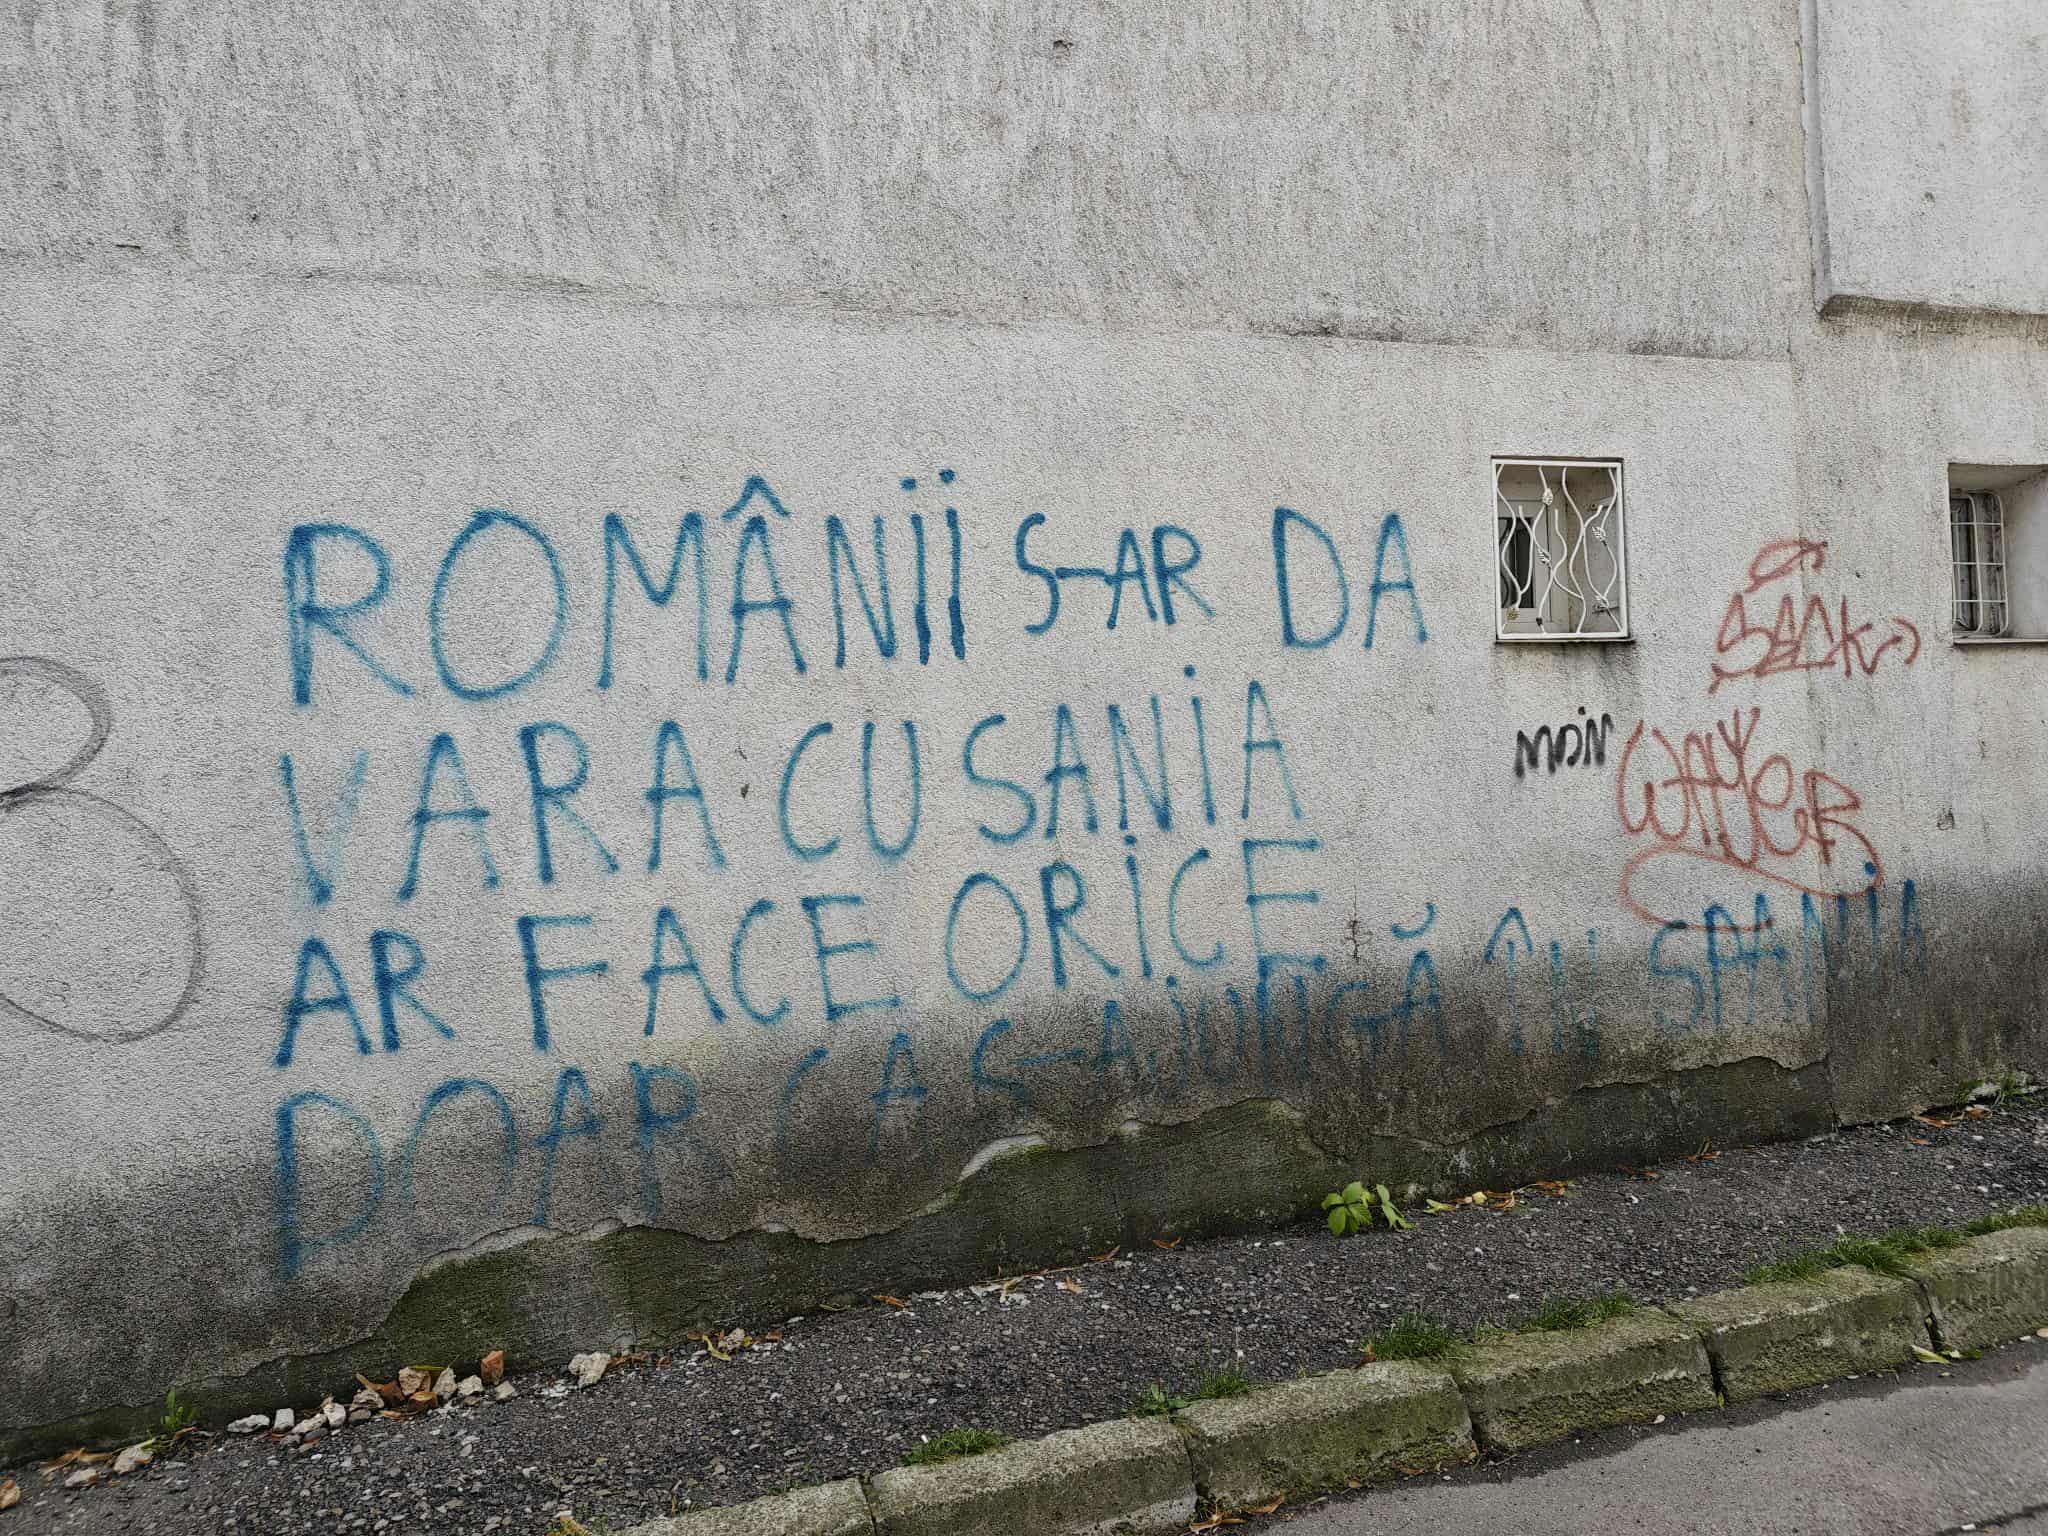 ROMÂNII S-AR DA
VARA CU SANIA
AR FACE ORICE
DOAR CA S-AJUNGĂ ÎN SPANIA
SACK
MDN
WAYER